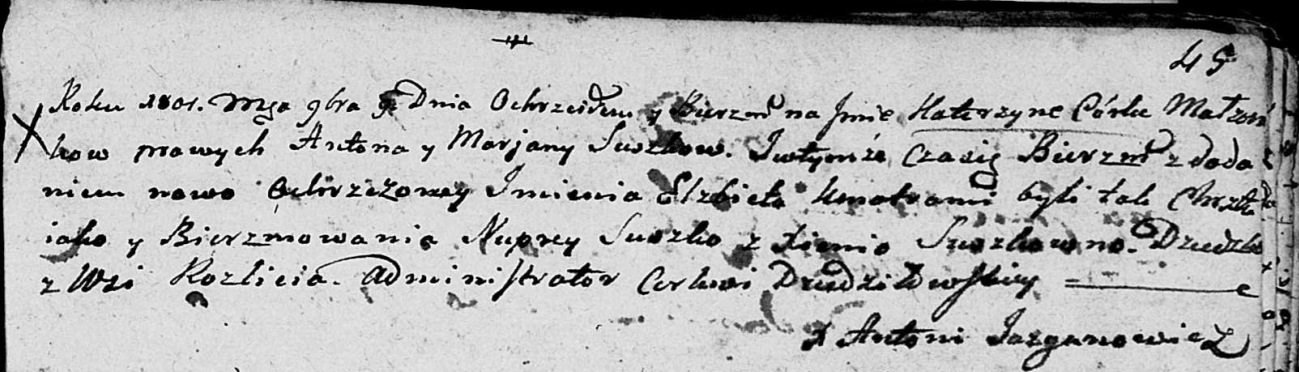 45
Roku 1801. Mca 9bra 9 Dnia Ochrzciłem y Bierzm na Jmie Katerzyne Córku Małżon
kow prawych Antona y Marjany Suszkow. Jwtymże Czasie Bierzm z doda
niem nowo Ochrzczoney Jmienia Elżbieta Kmotrami byli tak Chrztu
iako y Bierzmowania Nuprey Suszko z Xienio Suszkowno.
z Wsi Rozlicia. Administrator Cerkwi Dziedziłowskiey
X Antoni Jazganowicz